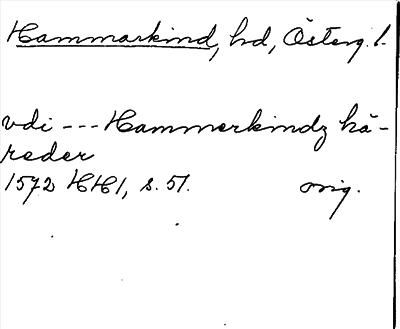 Hammarkind, hd, Österg. l.
vdi --- Hammerkindz hä-
reder
1572 HH1, s. 51. orig.